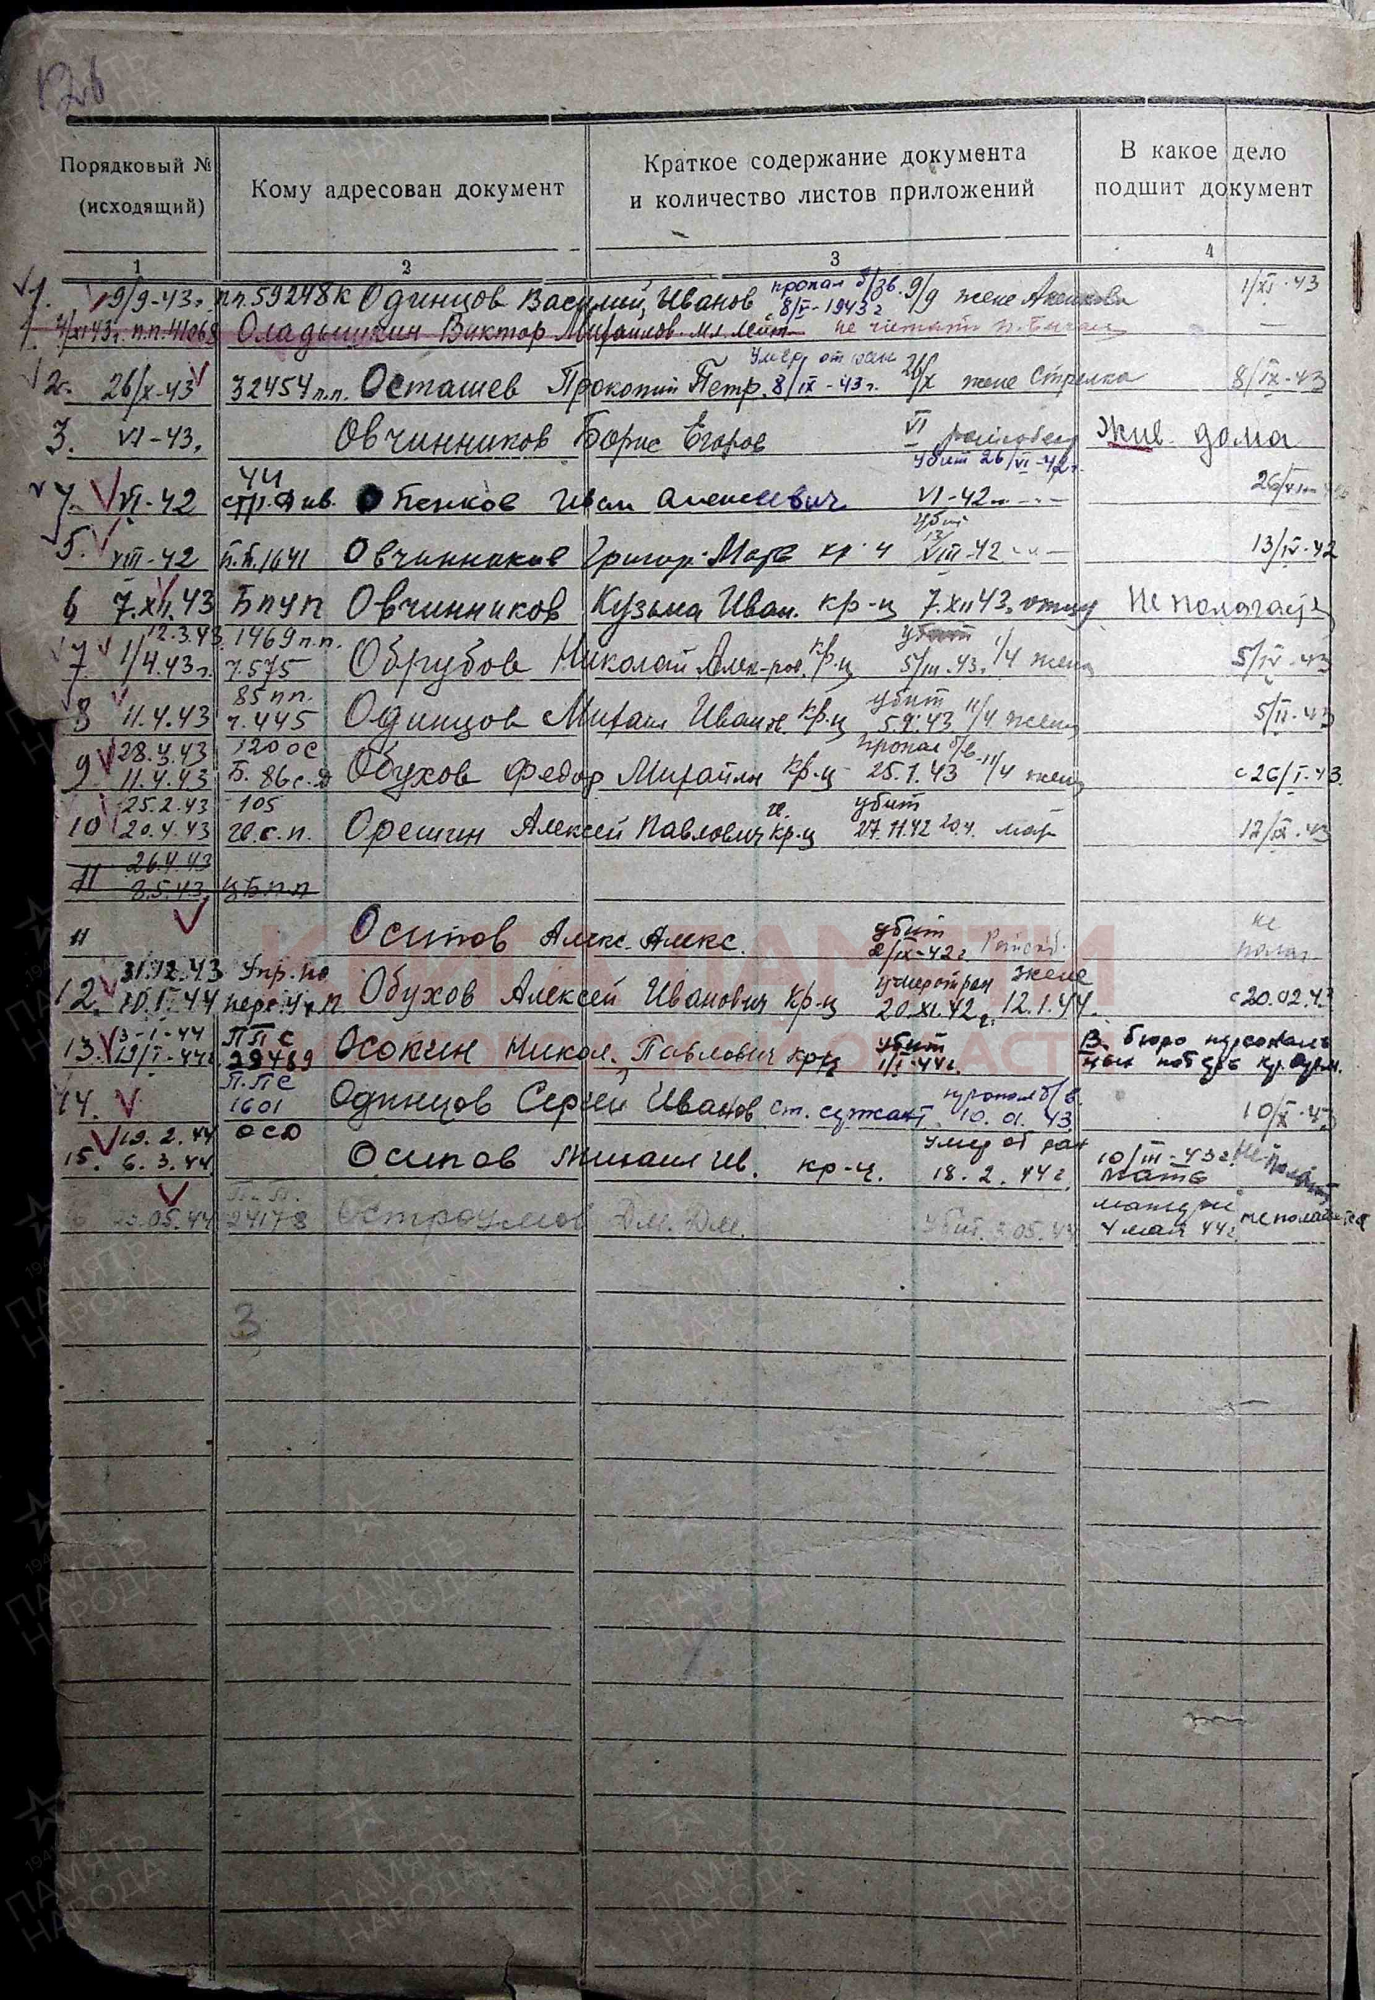 126
Порядковый №
(исходящий)
Кому адресован документ
Краткое содержание документа
и количество листов приложений
В какое дело
подшит документ
1 2 3 4
1. 9/9-43г. пп.59248к Одинцов Василий Иванов пропал б/зв. 8/V-1943г 9/9 жене 1/XI-43
п.п. 41068 Оладышкин Виктор Михайлов. мл. лейт
2. 26/X-43 32454 п.п. Осташев Прокопий Петр. умер от ран 8/IX-43г. 26/X жене Стрелка 8/IX-43
3. VI-43. Овчинников Борис Егоров VI Жив. дома
убит 26/VI-42г.
4. VI-42 44 стр. див. Обенков Иван Алексеевич VI-42
5. VIII-42 п.п.1641 Овчинников Григор. кр-ц убит 13/VIII-42 13/IV-42
6 7.XII.43 БПУП Овчинников Кузьма Иван. кр-ц 7.XII.43. Не полагается
7 12.3.43 1/4.43г. 1469 п.п. ч.575 Обрубов Николай Алек-ров. кр-ц убит 5/III.43г. 1/4 жене 5/IV-43
8 11.4.43 85 пп. ч.445 Одинцов Михаил Иванов. кр-ц убит 5.9.43 11/4 жене 5/II-43
9 28.3.43 11.4.43 120 ос Б. 86 с.д Обухов Федор Михайлн кр-ц пропал б/в 25.1.43 11/4 жене с 26/I-43.
10 25.2.43 20.4.43 105 гв.с.п. Орешин Алексей Павлович гв. кр-ц убит 27.11.42 20.4. 12/IX-43
11 26.4.43 3.5.43
11 Осипов Алекс. Алекс. убит 2/IX-42г. не полаг.
12. 31.12.43 10.I.44 Упр. по перс. Обухов Алексей Иванович кр-ц умер от ран 20.XI.42г. жене 12.1.44. с 20.02.43
13. 3-I-44 19/I-44г. ППС 29489 Осокин Никол. Павлович кр-ц убит 1/I-44г. В бюро персональ
ных потерь
14. П.ПС 1601 Одинцов Сергей Иванов ст. сержант пропал б/в. 10.01.43 10/X-43
15. 19.2.44 6.3.44 ОСО Осипов Михаил Ив. кр-ц. умер от ран 18.2.44г. 10/III-43г. мать не полаг
25.05.44 П.П. 24178 Остроумов Дм. Дм. убит 3.05.44 4 мая 44г не полагается
3
КНИГА ПАМЯТИ
ОБЛАСТИ
ПАМЯТЬ
НАРОДА